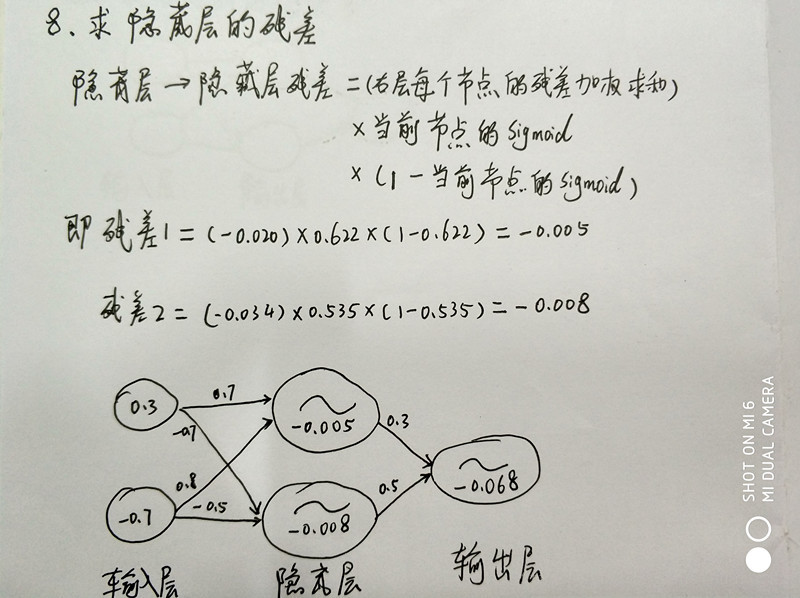 8、求隐藏层的残差
隐藏层→隐藏层残差=(右层每个节点的残差加权求和)
×当前节点的sigmoid
×(1-当前节点的sigmoid)
即残差1=(-0.020)×0.622×(1-0.622)=-0.005
残差2=(-0.034)×0.535×(1-0.535)=-0.008
0.3
0.7
-0.005
0.3
-0.7
-0.068
0.8
0.5
-0.7
-0.5
-0.008
输入层
隐藏层
输出层
SHOT ON MI 6
MI DUAL CAMERA